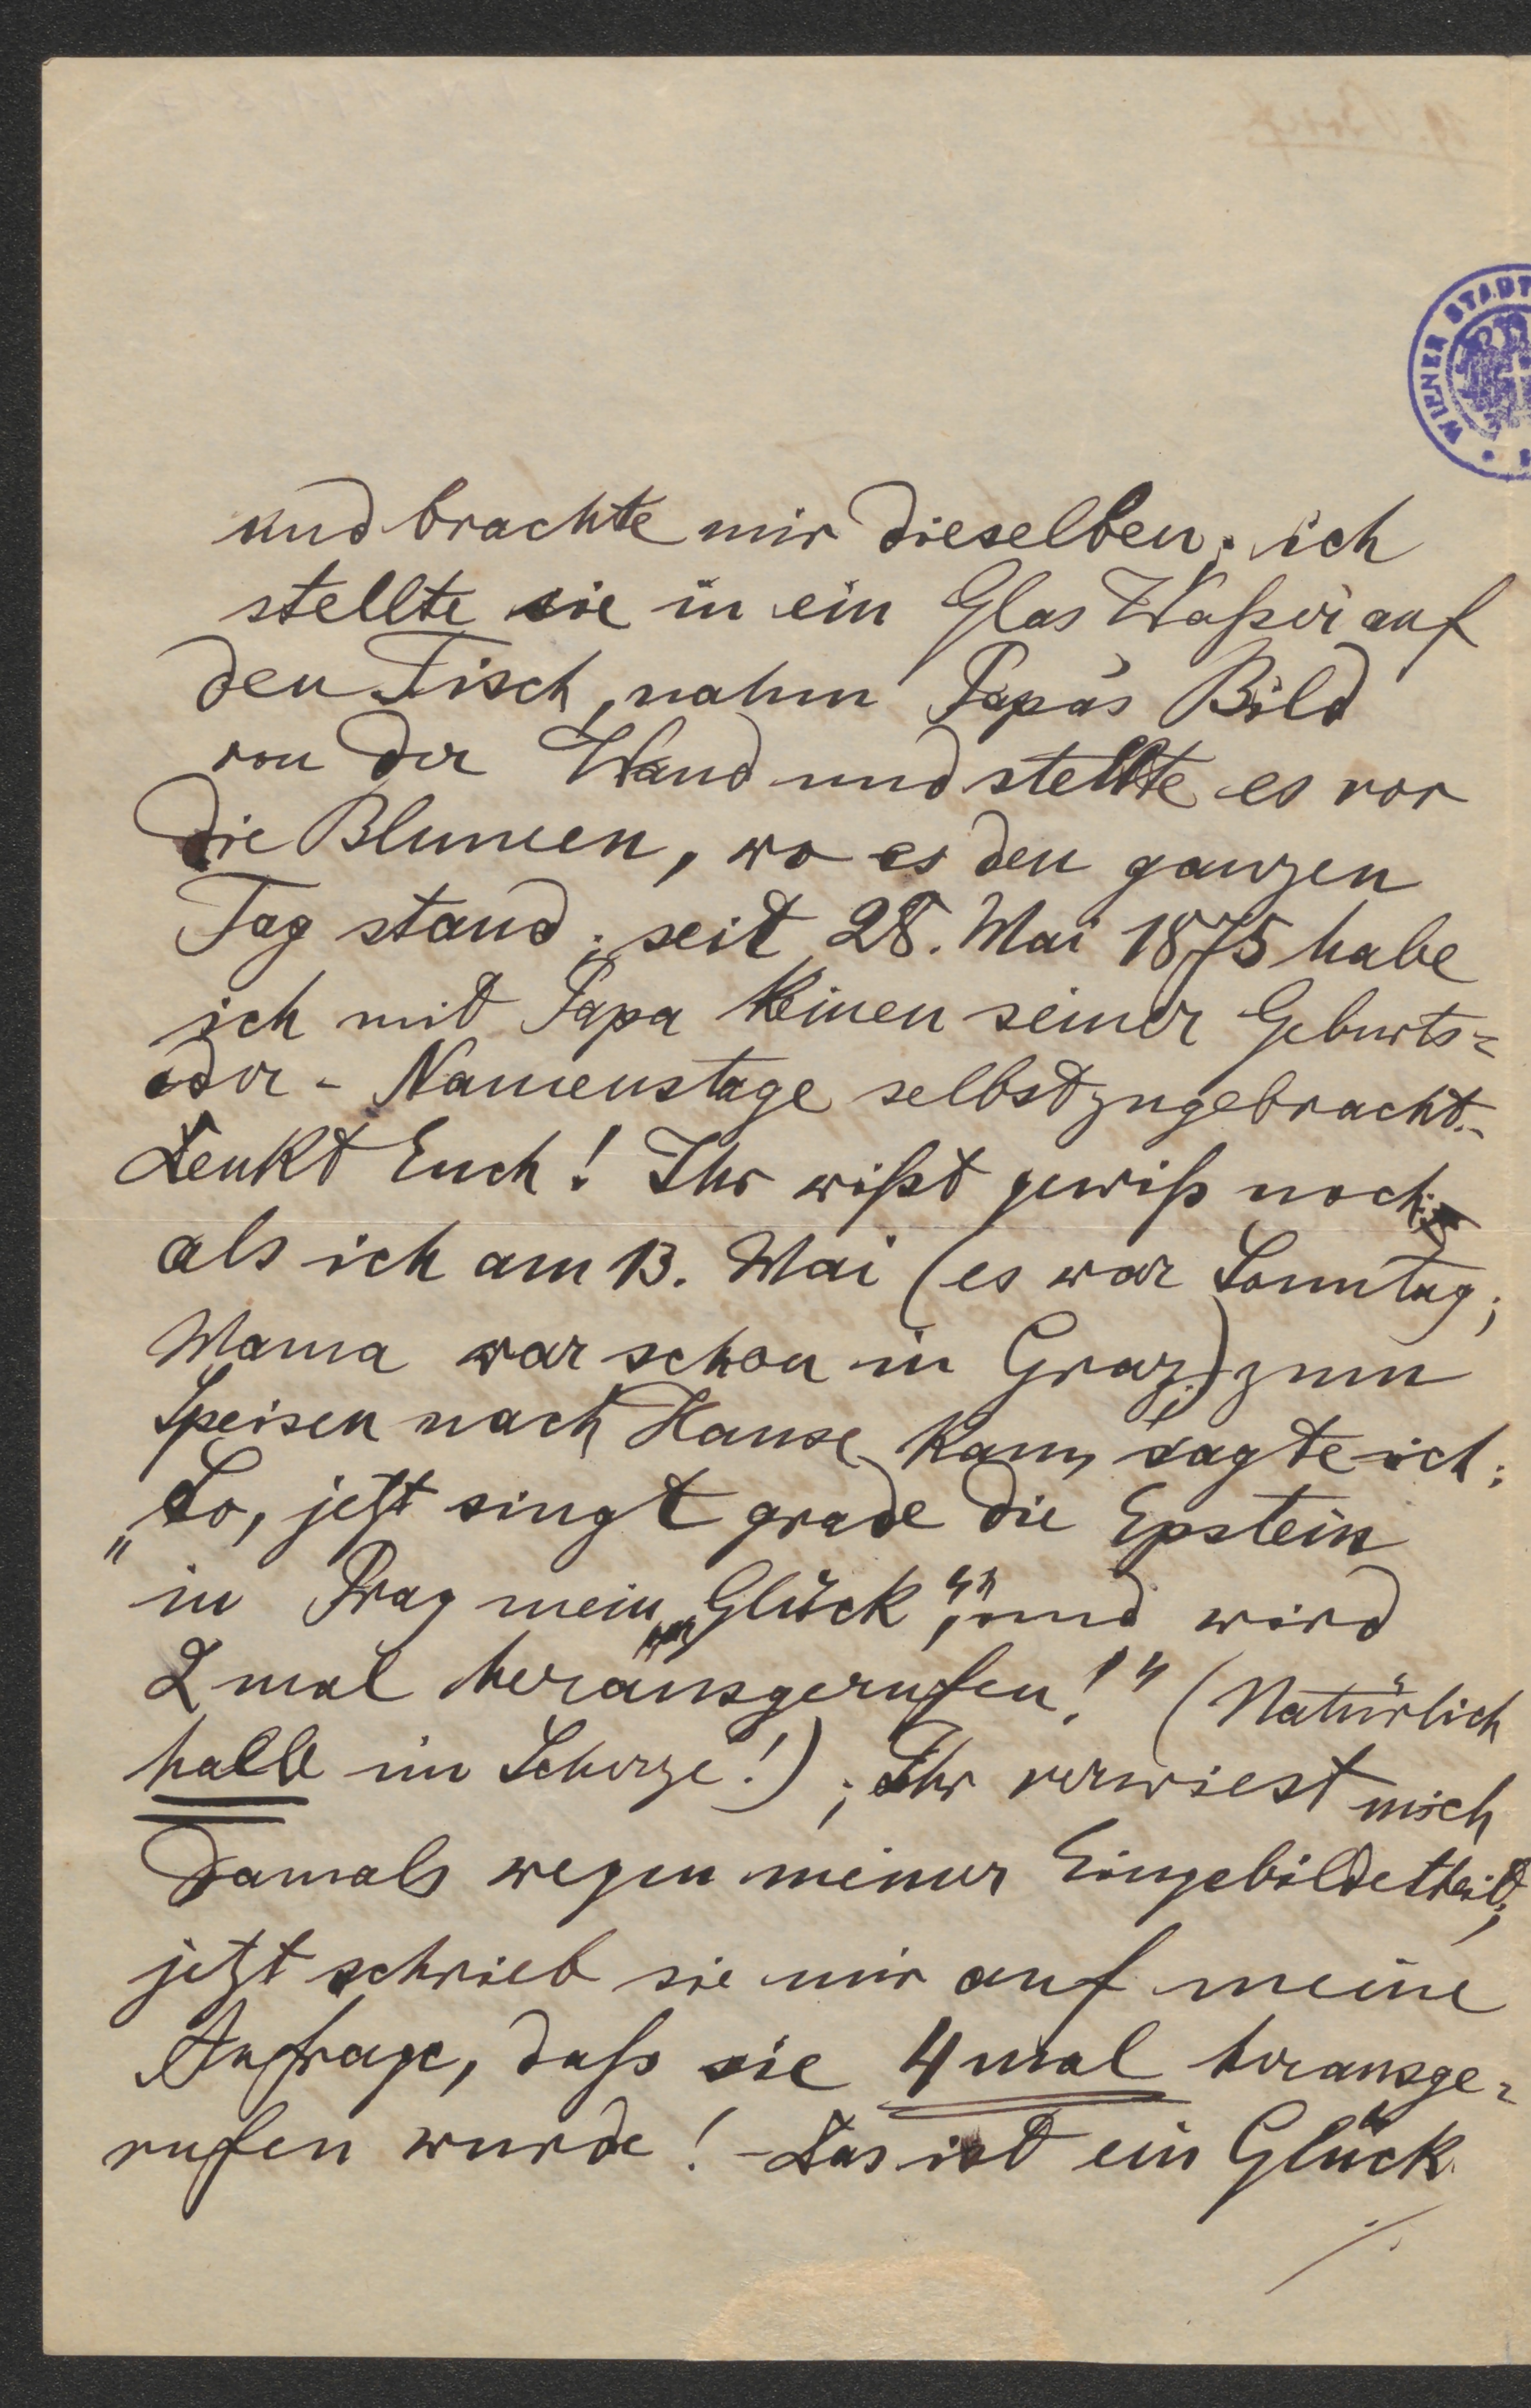 WIENER STADT
und brachte mir dieselben; ich
stellte sie in ein Glas Waßer auf
den Tisch, nahm Papa's Bild
von der Wand und stellte es vor
die Blumen, wo es den ganzen
Tag stand; seit 28. Mai 1875 habe
ich mit Papa keinen seiner Geburts=
oder - Namenstage selbst zugebracht.-
Denkt Euch! Ihr wißt gewiß noch:
als ich am 13. Mai (es war Sonntag;
Mama war schon in Graz) zum
Speisen nach Hause kam, sagte ich:
„So, jetzt singt grade die Epstein
in Prag mein „„Glück““, und wird
2 mal herausgerufen!“ (Natürlich
halb im Scherze!); Ihr verwiest mich
damals wegen meiner Eingebildetheit;
jetzt schrieb sie mir auf meine
Anfrage, daß sie 4 mal herausge=
rufen wurde! - Das ist ein Glück
./.